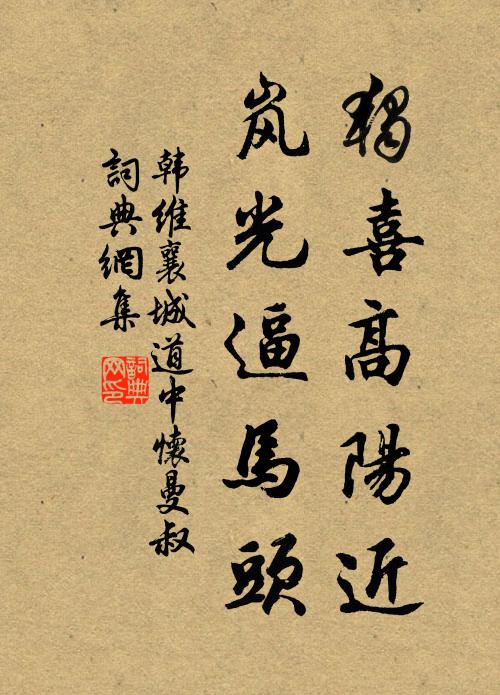 独喜高陽近
岚光逼馬頭
韩維襄城道中懷曼叔
詞典網集
詞典网印